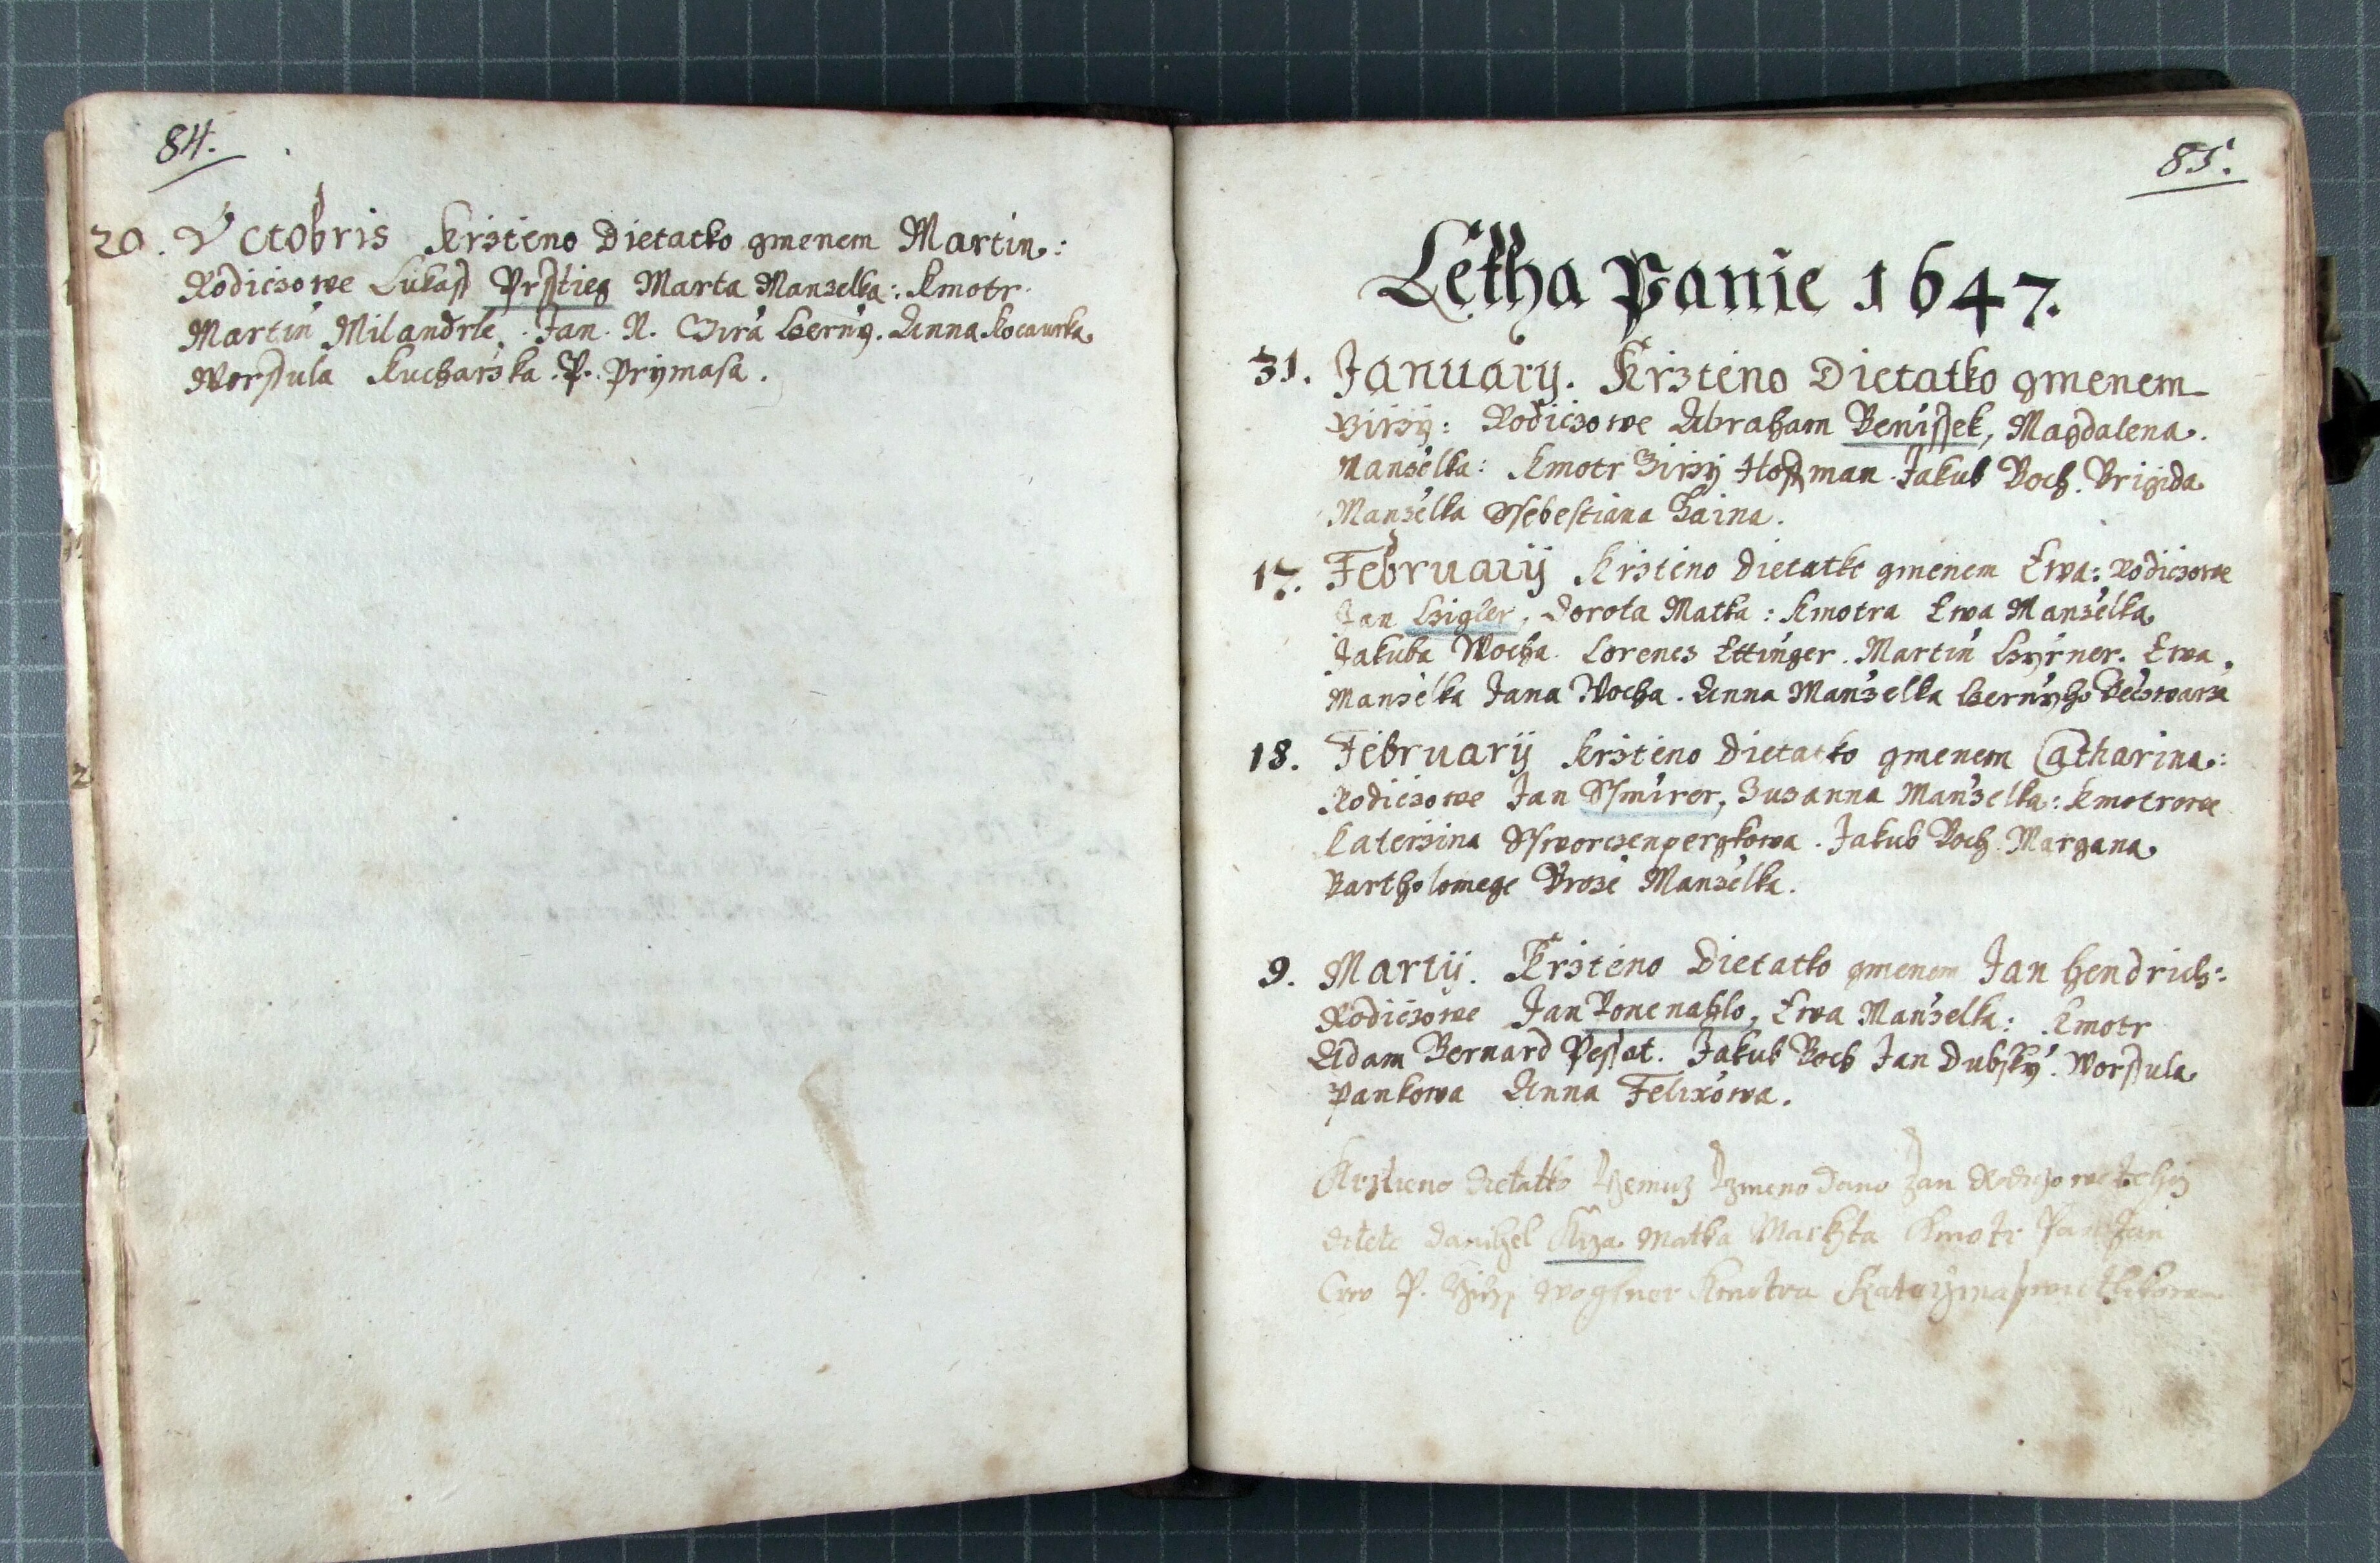 84.
20. Octobris Krzténo Dietatko gmenem Martin:
Rodiczowe Lukass Prsstieg Marta Manzelka: Kmotr
Martin Milandrle. Jan. N. Girá Czerny. Anna Kocaurka
Worssula Kucharska. P. Prymasa.
85.
Létha Panie 1647.
31. January. Krzténo Dietatko gmenem
Girzy: Rodiczowe Abraham Benissek, Magdalena
Manzelka: Kmotr Girzy Hoffman. Jakub Boch. Brigida
Manzelka Ssebestiana Gaina.
17. February Krzténo Dietatko gmenem Ewa: Rodiczowe
Jan Czigler, Dorota Matka: Kmotra Ewa Manzelka
Jakuba Wocha. Lorencz Ettinger. Martin Czyrner. Ewa
Manzelka Jana Wocha. Anna Manzelka Czernyho Beczwarza
18. February Krzténo Dietatko gmenem Catharina:
Rodiczowe Jan Ssmirer, Zuzanna Manzelka: Kmotrowe
Katerzina Ssworczenpergkowa. Jakub Boch. Margana
Bartholomege Broze Manzelka.
9. Martij. Krzténo Dietatko gmenem Jan Hendrich:
Rodiczowe Jan Ponenahlo, Ewa Manzelka: Kmotr
Adam Bernard Pessat. Jakub Boch Jan Dubsky. Worssula
Pankowa Anna Felixowa.
Krztieno dietatko Gemuz Gmeno dano Jan Rodiczowe tehoz
ditete Danihel Matka Markhta Kmotr Pan Jan
P. Wogtner Kmotra